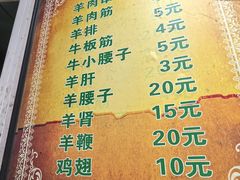 羊肉筋
羊排 5元
牛板筋 4元
牛小腰子 5元
羊肝 3元
羊腰子 20元
羊肾 15元
羊鞭 20元
鸡翅 10元